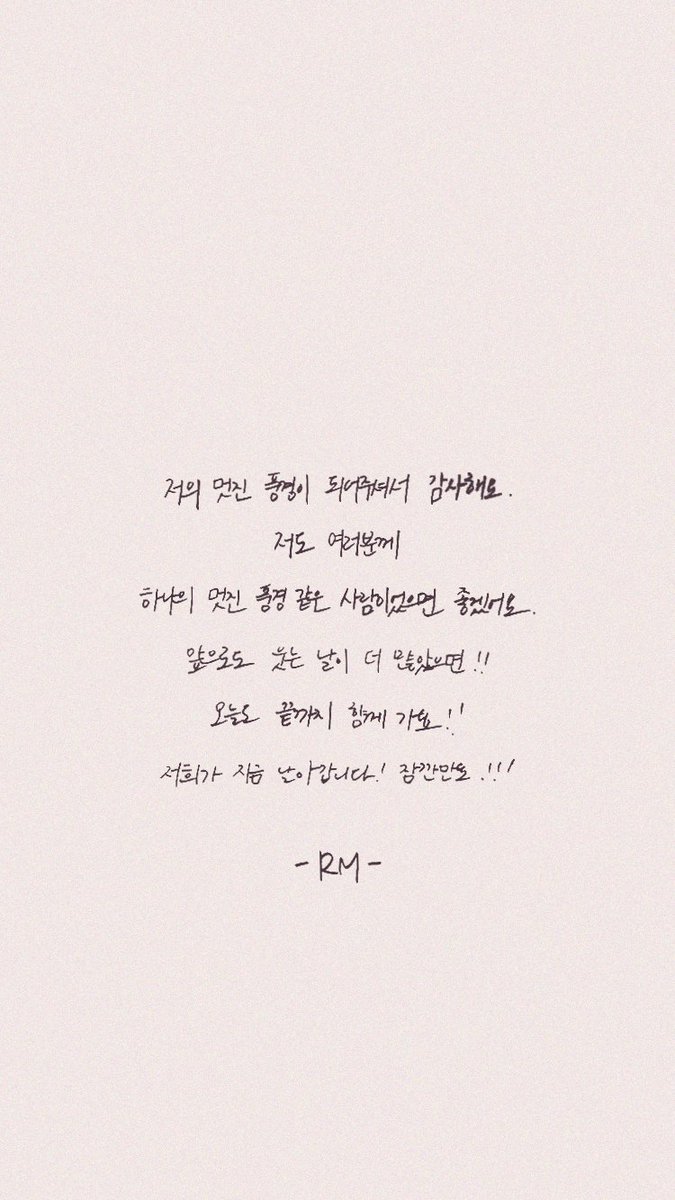 저의 멋진 풍경이 되어주셔서 감사해요.
저도 여러분께
하나의 멋진 풍경 같은 사람이었으면 좋겠어요.
앞으로도 웃는 날이 더 많았으면!!
오늘도 끝까지 함께 가요!!
저희가 지금 날아갑니다! 잠깐만요.!!!
-RM-